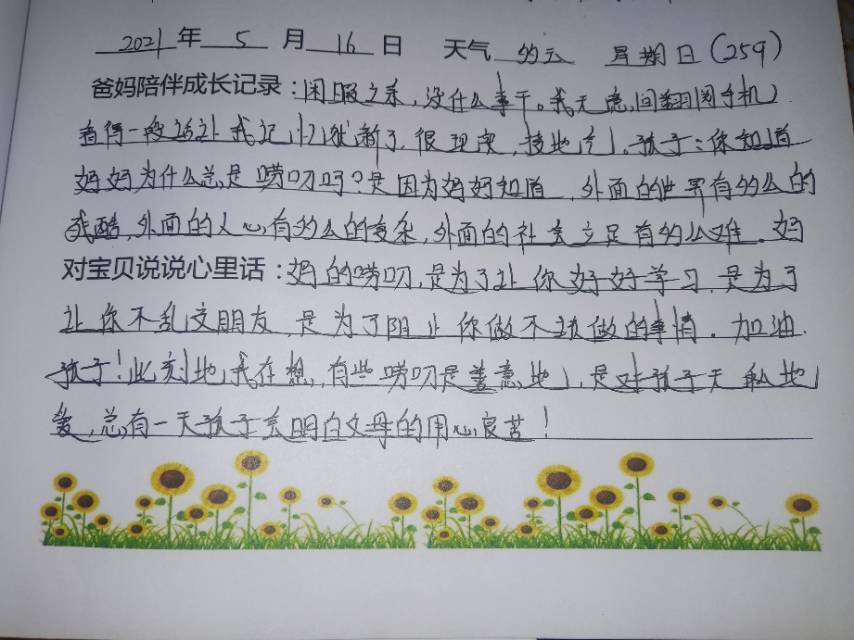 2021年5月16日 天气 多云 星期日(259)
爸妈陪伴成长记录:闲暇之余,没什么事干。我无意间翻阅手机
看得一段话让我记忆犹新了,很现实,接地气,孩子:你知道
妈妈为什么总是唠叨吗?是因为妈妈知道,外面的世界有多么的
残酷,外面的人心有多么的复杂,外面的社会立足有多么难.妈
对宝贝说说心里话:妈的唠叨,是为了让你好好学习,是为了
让你不乱交朋友,是为了阻止你做不该做的事情.加油.
孩子!此刻地我在想,有些唠叨是善意地,是对孩子无私地
爱,总有一天孩子会明白父母的用心良苦!